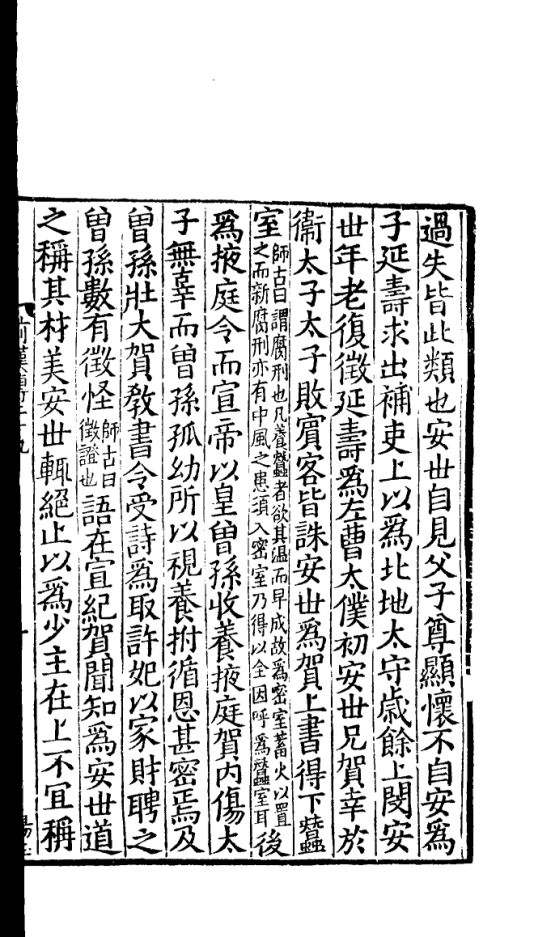 過失皆此類也安丗自見父子尊顯懷不自安爲
子延壽求出補吏上以爲北地太守歲餘上閔安
丗年老復徵延壽爲左曹太僕初安丗兄賀幸於
衞太子太子敗賓客皆誅安丗爲賀上書得下蠶
室師古曰謂腐刑也凡養蠶者欲其温而早成故爲密室蓄火以置之而新腐刑亦有中風之患須入密室乃得以全因呼爲蠶室耳後
爲掖庭令而宣帝以皇曾孫收養掖庭賀内傷太
子無辜而曾孫孤幼所以視養拊循恩甚密焉及
曾孫壯大賀教書令受詩爲取許妃以家財聘之
曾孫數有徵怪師古曰徵證也語在宣紀賀聞知爲安丗道
之稱其材美安丗輒絕止以爲少主在上不冝稱